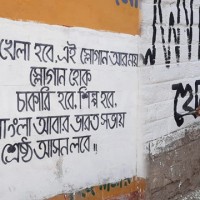 খেলা হবে. এই স্লোগান আর নয়
স্লোগান হোক
চাকরি হবে. শিল্প হবে.
বাংলা আবার ভারত সভায়
শ্রেষ্ঠ আসন লবে ॥
খে